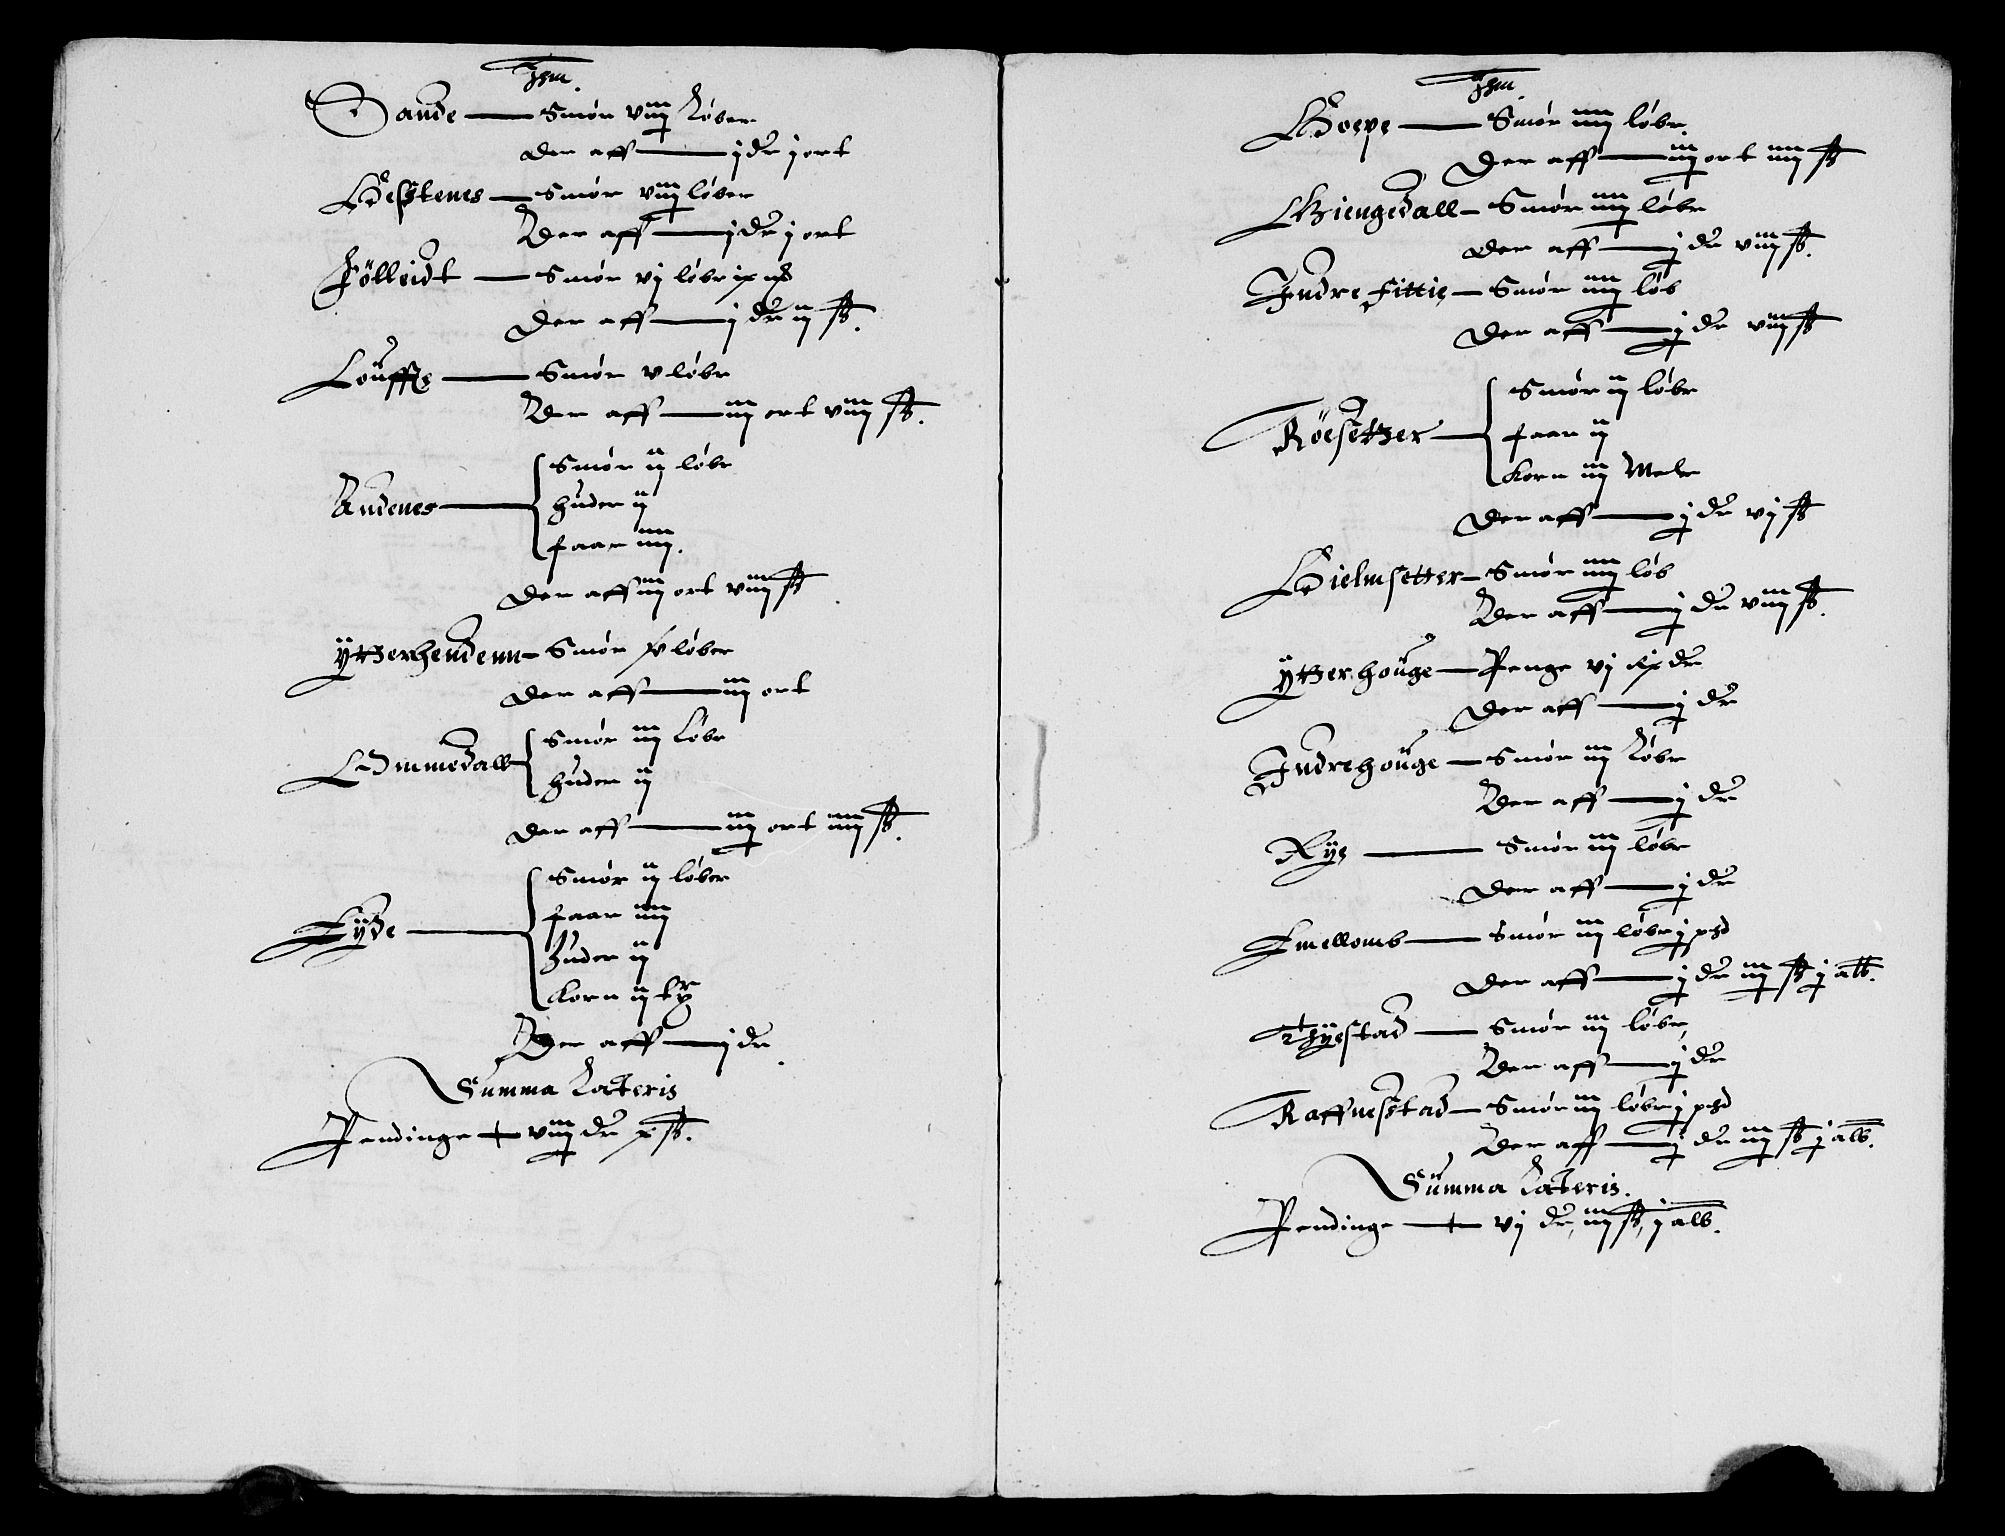 Ihm.
Sande — Smör viij löber
Der aff — j dr j ort
Hesstenes — Smör viij löber
Der aff — j dr j ort
Fölleidt — Smör vj löbr ix
Der aff — j dr ij ß.
Louffße — Smör v löbr
Der aff — iij ort viij ß.
Andenes — Smör ij löbr
huder ij
faar iiij.
Der aff iij ort viij ß
ÿtzerhendenn — Smör löber
Der aff — iij ort
Ommedall — Smör iiij löbr
huder ij
Der aff — iij ort iiij ß.
Eÿde — Smör ij löber
faar iiij
huder ij
Korn ij tr
Der aff — j dr
Summa Lateris
Pendinge — viij dr x ß.
Ihm.
Hoepe — Smör iiij löbr.
Der aff — iij ort iiij ß
Giengedall — Smör iiij löbr
Der aff — j dr viij ß.
Indre fittie — Smör iiij löb
Der aff — j dr viij ß
Röesetzer — Smör ij löbr
faar ij
Korn iij Meler
Der aff — j dr vj ß
Hielmsetter — Smör iiij löb
Der aff — j dr viij ß.
ÿtzerhouge — Penge vj dr
Der aff — j dr
Indrehouge — Smör iij löbr
Der aff — j dr
Rÿe — Smör iij löbr
Der aff — j dr
Emellomb — Smör iij löbr j pd
Der aff — j dr iij ß j alb.
Thÿestad — Smör iij löbr,
Der aff — j dr
Raffnesstad — Smör iij löbr j pd
Der aff — j dr iij ß j alb.
Summa Lateris.
Pendinge — vj dr, iij ß, j alb.